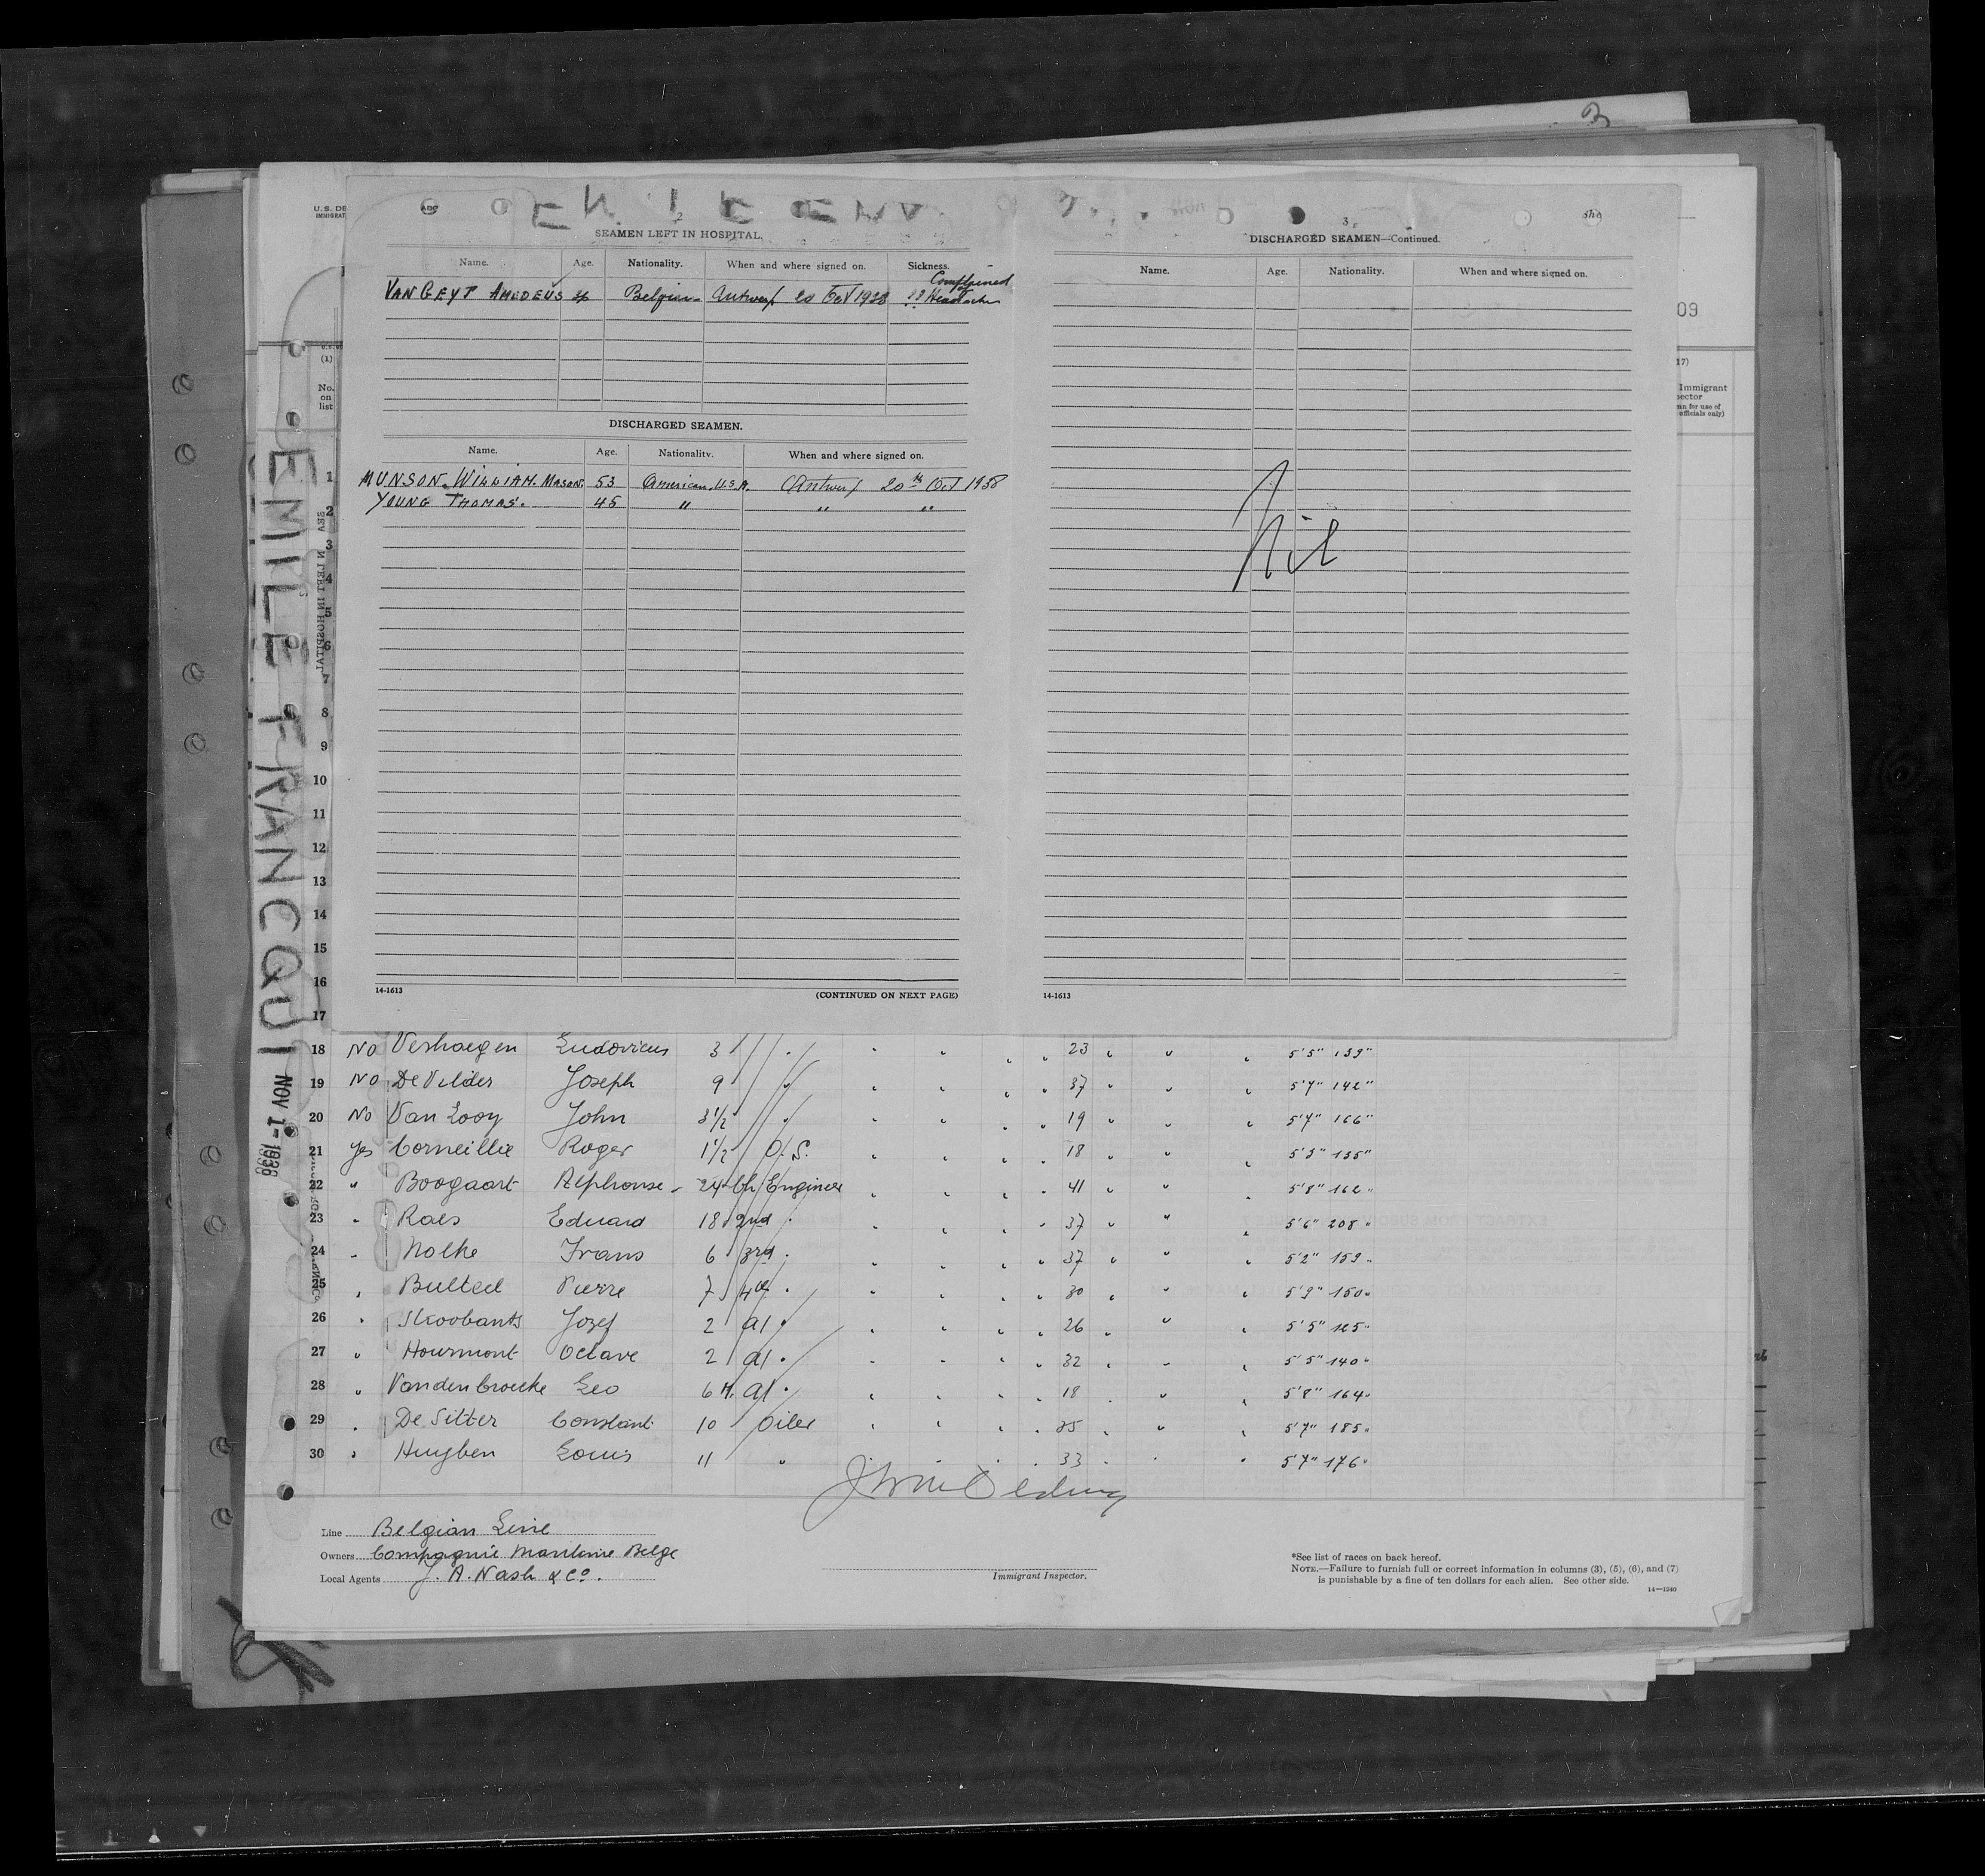 U.S. DE
IMMIGRAT
2
SEAMEN LEFT IN HOSPITAL.
Name. Age. Nationality. When and where signed on. Sickness.
VAN GEYT AMEDEUS Belgian Antwerp 20 Oct 1938 Complained of Headaches
DISCHARGED SEAMEN.
Name. Age. Nationality. When and where signed on.
MUNSON. WILLIAM. MASON. 53 American. U.S.A. Antwerp 20th Oct 1938
YOUNG THOMAS. 45 " " "
14-1613 (CONTINUED ON NEXT PAGE)
3
DISCHARGED SEAMEN—Continued.
Name. Age. Nationality. When and where signed on.
Nil
14-1613
09
17)
Immigrant
officials only)
(1)
No.
on
list
EMILE FRANCQUI
NOV 1-1938
LEFT IN HOSPITAL
1
2
3
4
5
6
7
8
9
10
11
12
13
14
15
16
17
18 No Verhaegen Ludovicus 3 " " " " " 23 " " " 5'5" 139"
19 No De Vilder Joseph 9 " " " " " 37 " " " 5'7" 142"
20 No Van Looy John 3 1/2 " " " " " 19 " " " 5'7" 166"
21 Yes Corneillie Roger 1 1/2 O.S. " " " " 18 " " " 5'3" 135"
22 " Boogaart Alphonse 24 Ch Engineer " " " " 41 " " " 5'8" 162"
23 " Raes Eduard 18 2nd " " " " " 37 " " " 5'6" 208"
24 " Nolke Frans 6 3rd " " " " " 37 " " " 5'2" 159"
25 " Bulteel Pierre 7 4th " " " " " 30 " " " 5'9" 150"
26 " Skoobants Jozef 2 a/ " " " " " 26 " " " 5'5" 125"
27 " Hourmont Octave 2 a/ " " " " " 32 " " " 5'5" 140"
28 " Vandenbroucke Leo 6 M. a/ " " " " " 18 " " " 5'8" 164"
29 " De Sitter Constant 10 Oiler " " " " 35 " " " 5'7" 185"
30 " Huyben Louis 11 " " " " " 33 " " " 5'7" 176"
Line Belgian Line
Owners Compagnie Maritime Belge
Local Agents J. A. Nash & Co.
Immigrant Inspector.
*See list of races on back hereof.
NOTE.—Failure to furnish full or correct information in columns (3), (5), (6), and (7)
is punishable by a fine of ten dollars for each alien. See other side.
14—1240